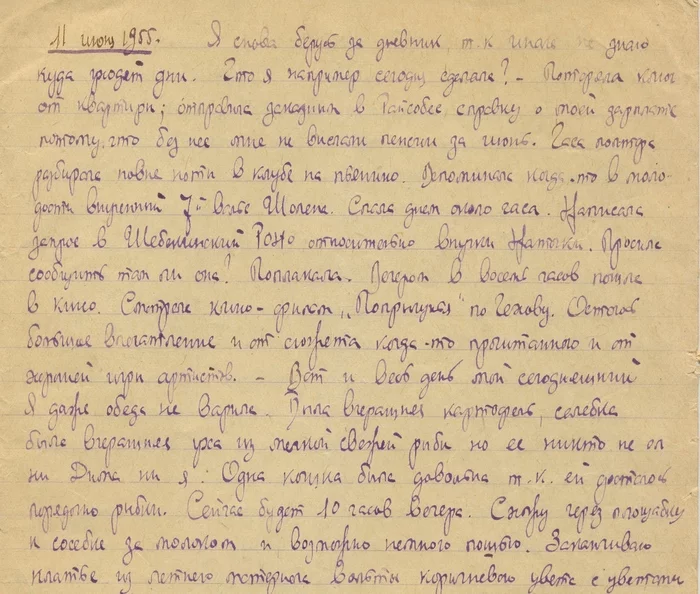 11 июня 1955. Я снова берусь за дневник, т.к. иначе не знаю
куда уходят дни. Что я например сегодня сделала? – Потеряла ключ
от квартиры; отправила заказным в Райсобес справку о моей зарплате
потому, что без нее мне не выслали пенсии за июнь. Часа полтора
разбирала новые ноты в клубе на пьянино. Вспоминала когда-то в моло-
дости выученный 7й вальс Шопена. Спала днем около часа. Написала
запрос в Шебекинский РОНО относительно внучки Наташки. Просила
сообщить там ли она? Поплакала. Вечером в восемь часов пошла
в кино. Смотрела кино-фильм „Попрыгунья" по Чехову. Осталось
большое впечатление и от сюжета когда-то прочитанного и от
хорошей игры артистов. – Вот и весь день мой сегодняшний
Я даже обеда не варила. Была вчерашняя картофель, селедка
была вчерашняя уха из мелкой свежей рыбы но ее никто не ел
ни Дима ни я. Одна кошка была довольна т.к. ей досталось
порядочно рыбки. Сейчас будет 10 часов вечера. Схожу через площадку
к соседке за молоком и возможно немного пошью. Заканчиваю
платье из летнего материала вольты коричневого цвета с цветами